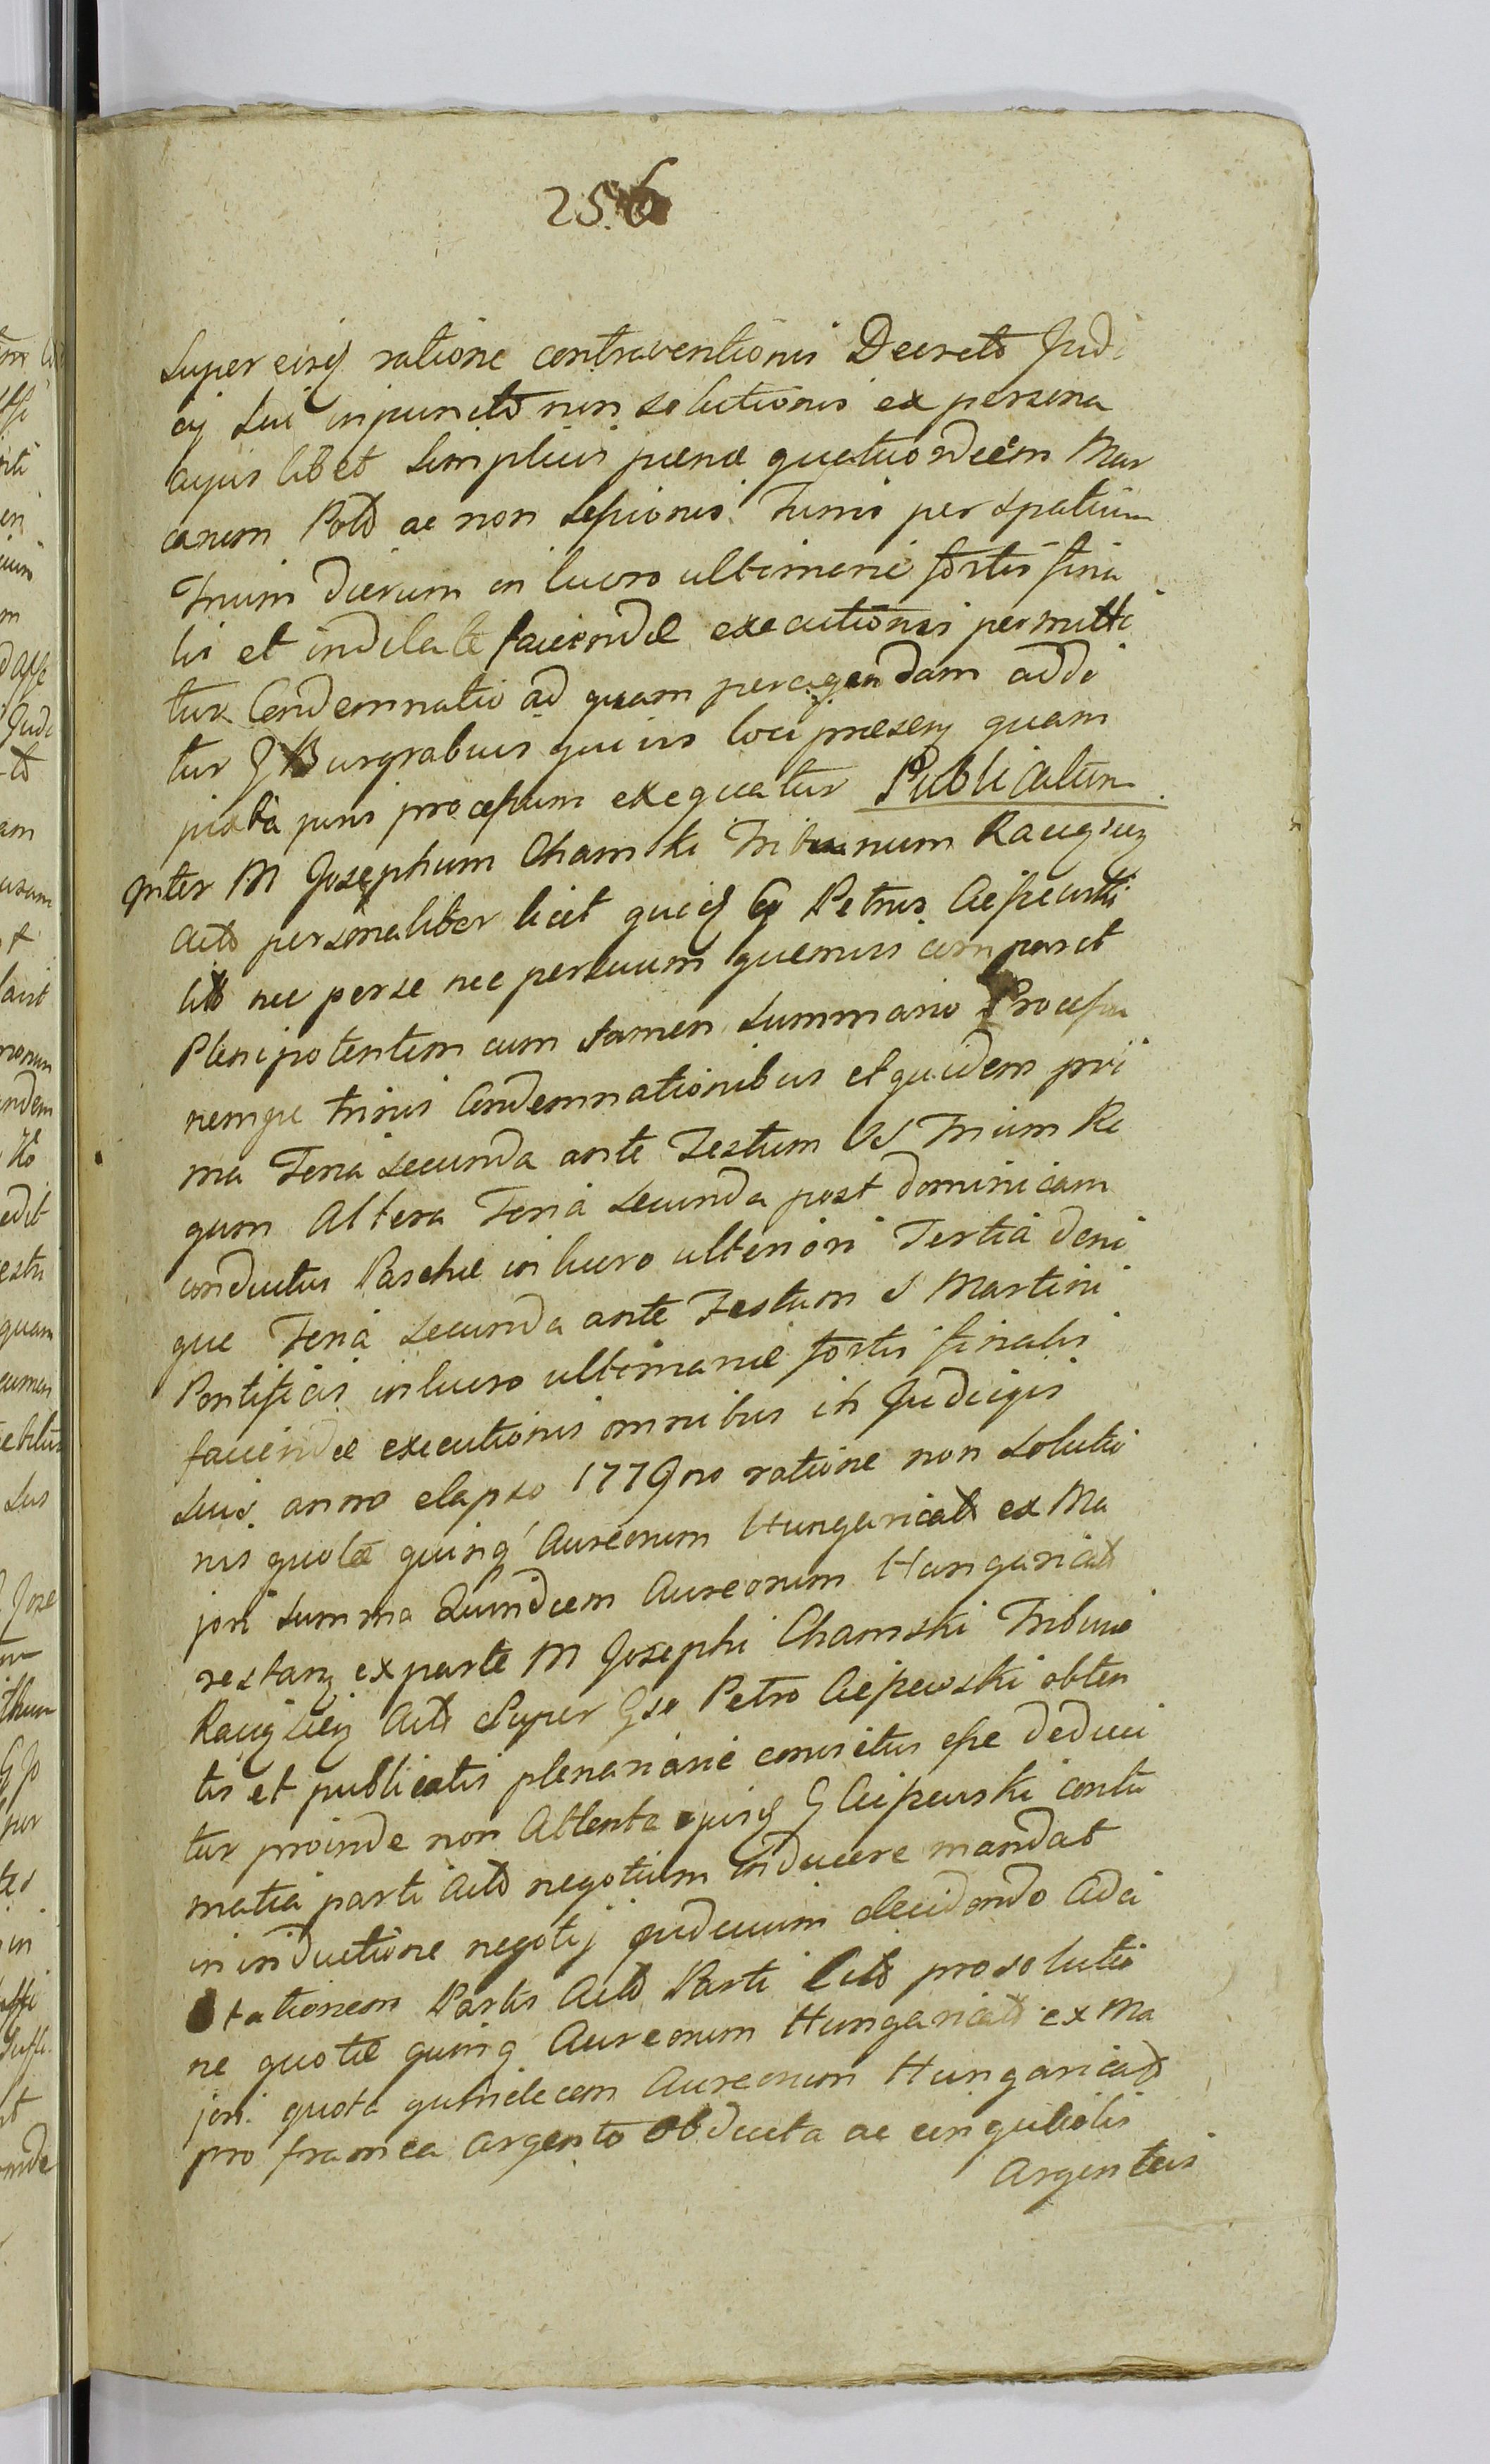 256
Super eisq ratione contraventionis Decreto Judi
cij sui in puncto non solutionis ex persona
cujus libet simplicis pænæ quatuordecim Mar
carum Pold ac non sessionis Turris per spatium
Trium Dierum in lucro ultimarie fortis fina
lis et indilate faciendæ executionis permitti
tur Condemnatio ad quam peragendam addi
tur G Burgrabius quivis loci præsens quam
juxta juris processum exequatur Publicatum.
Inter M Josephum Chamski Tribunum
Actō personaliter licet quicq G Petrus Ciepewski
citō nec per se nec per suum quemvis comparet
Plenipotentem cum tamen summario Processu
nempe trinis Condemnationibus et quidem pri
ma Feria secunda ante Festum SS Trium Re
gum Altera Feria Secunda post dominicam
conductus Paschæ in lucro ulteriori Tertia deni
que Feria secunda ante Festum S Martini
Pontificis in lucro ultimariæ fortis finalis
faciendæ executionis omnibus in Judicijs
suis anno elapso 1779no ratione non solutio
nis quotæ quinq Aureorum Hungaricalō ex Ma
jori summa Quindecim Aureorum Hungaricalō
restanz ex parte M Josephi Chamski Tribuni
Actō Super Gso Petro Ciepewski obten
tis et publicatis plenariarie convictus esse deduci
tur proinde non Attenta ejusq G Ciepewski contu
matia parti Actō negotium inducere mandat
in inductione negotij judicium decidendo Adci
tationem Partis Actō Parti Citō pro solutio
ne quotæ quinq Aureorum Hungaricalō ex Ma
jori quota quindecem Aureorum Hungaricalō
pro framea argento obducta ac cingulolis
Argenteis